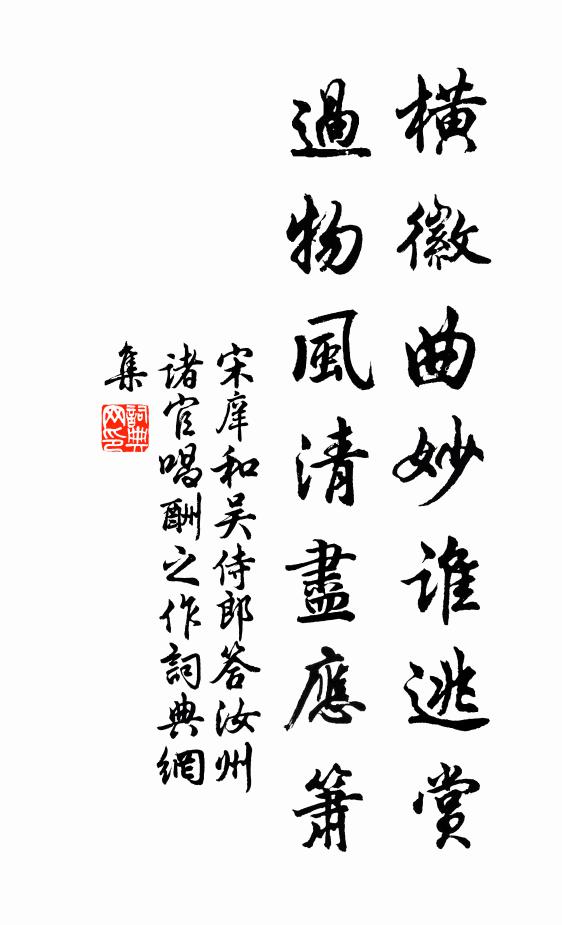 橫徽曲妙誰逃賞
過物風清盡應簫
宋庠和吴侍郎答汝州
诸官唱酬之作詞典網
集
詞典
网印